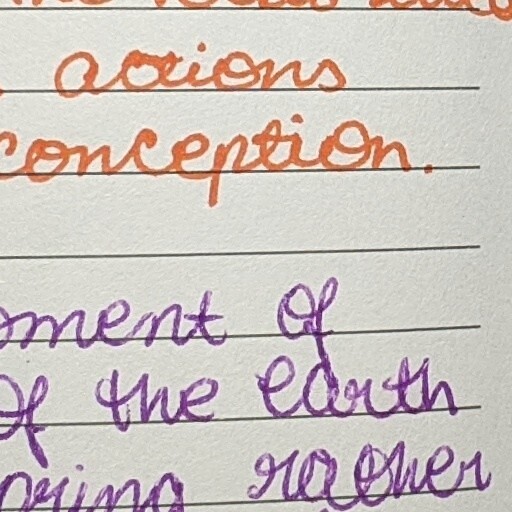 the
actions
conception.
ment of
of the earth
rather